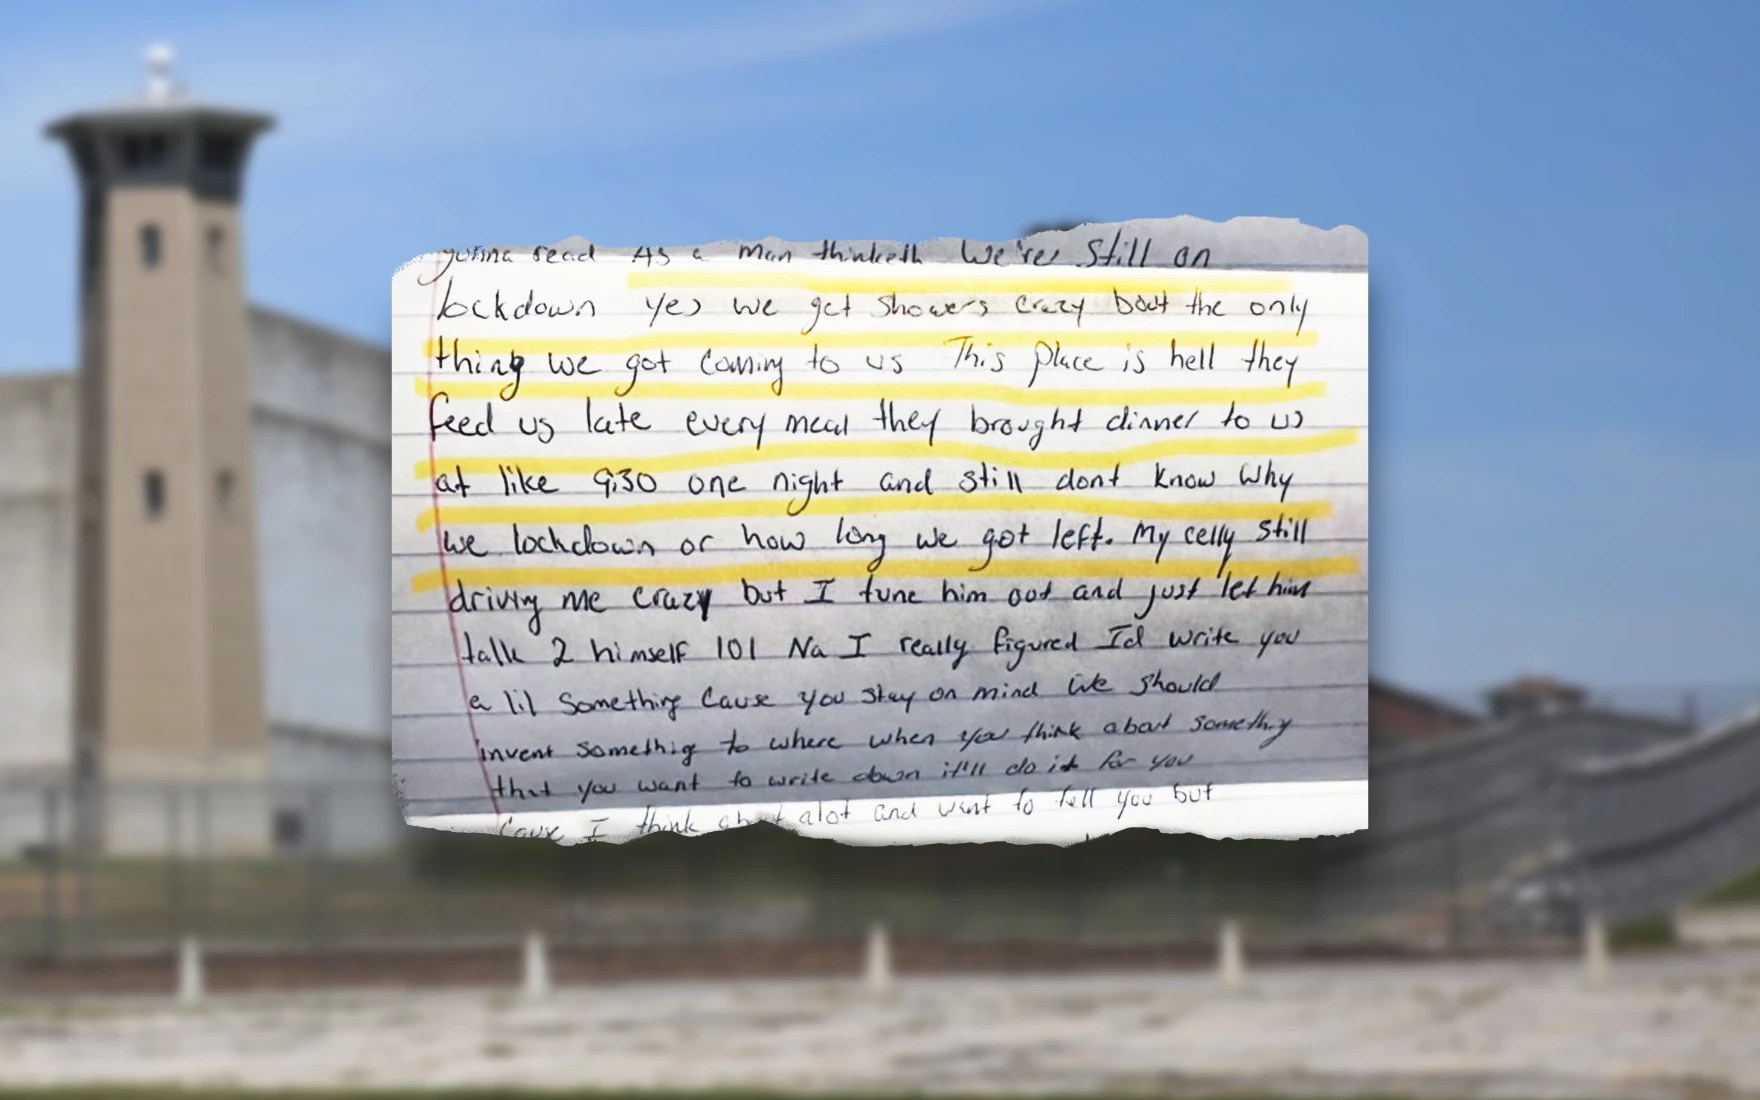 gonna read As a man thinketh We're still on
lockdown yes we get showers crazy bout the only
thing we got coming to us This place is hell they
feed us late every meal they brought dinner to us
at like 9:30 one night and still dont know why
we lockdown or how long we got left. My celly still
driving me crazy but I tune him out and just let him
talk 2 himself lol Na I really figured Id write you
a lil something cause you stay on mind We should
invent somethig to where when you think about something
that you want to write down it'll do it for you
Cause I think about alot and want to tell you but